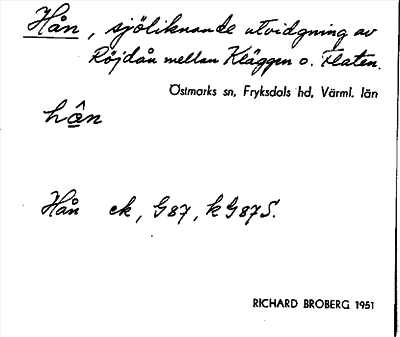 Hån, sjöliknande utvidgning av
Röjdån mellan Kläggen o. Flaten.
Östmarks sn, Fryksdals hd, Värml. län
hån
Hån ek, G87, kG87S.
RICHARD BROBERG 1951